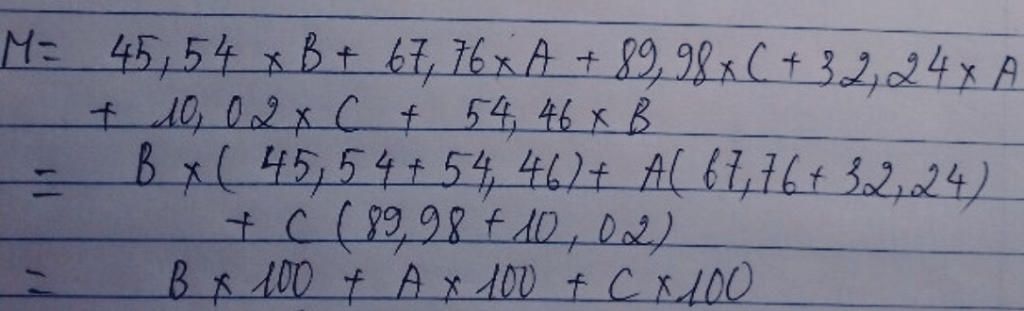 M= 45,54 × B + 67,76 × A + 89,98 × C + 32,24 × A
+ 10,02 × C + 54,46 × B
= B × ( 45,54 + 54,46) + A( 67,76 + 32,24)
+ C (89,98 + 10,02)
= B × 100 + A × 100 + C × 100